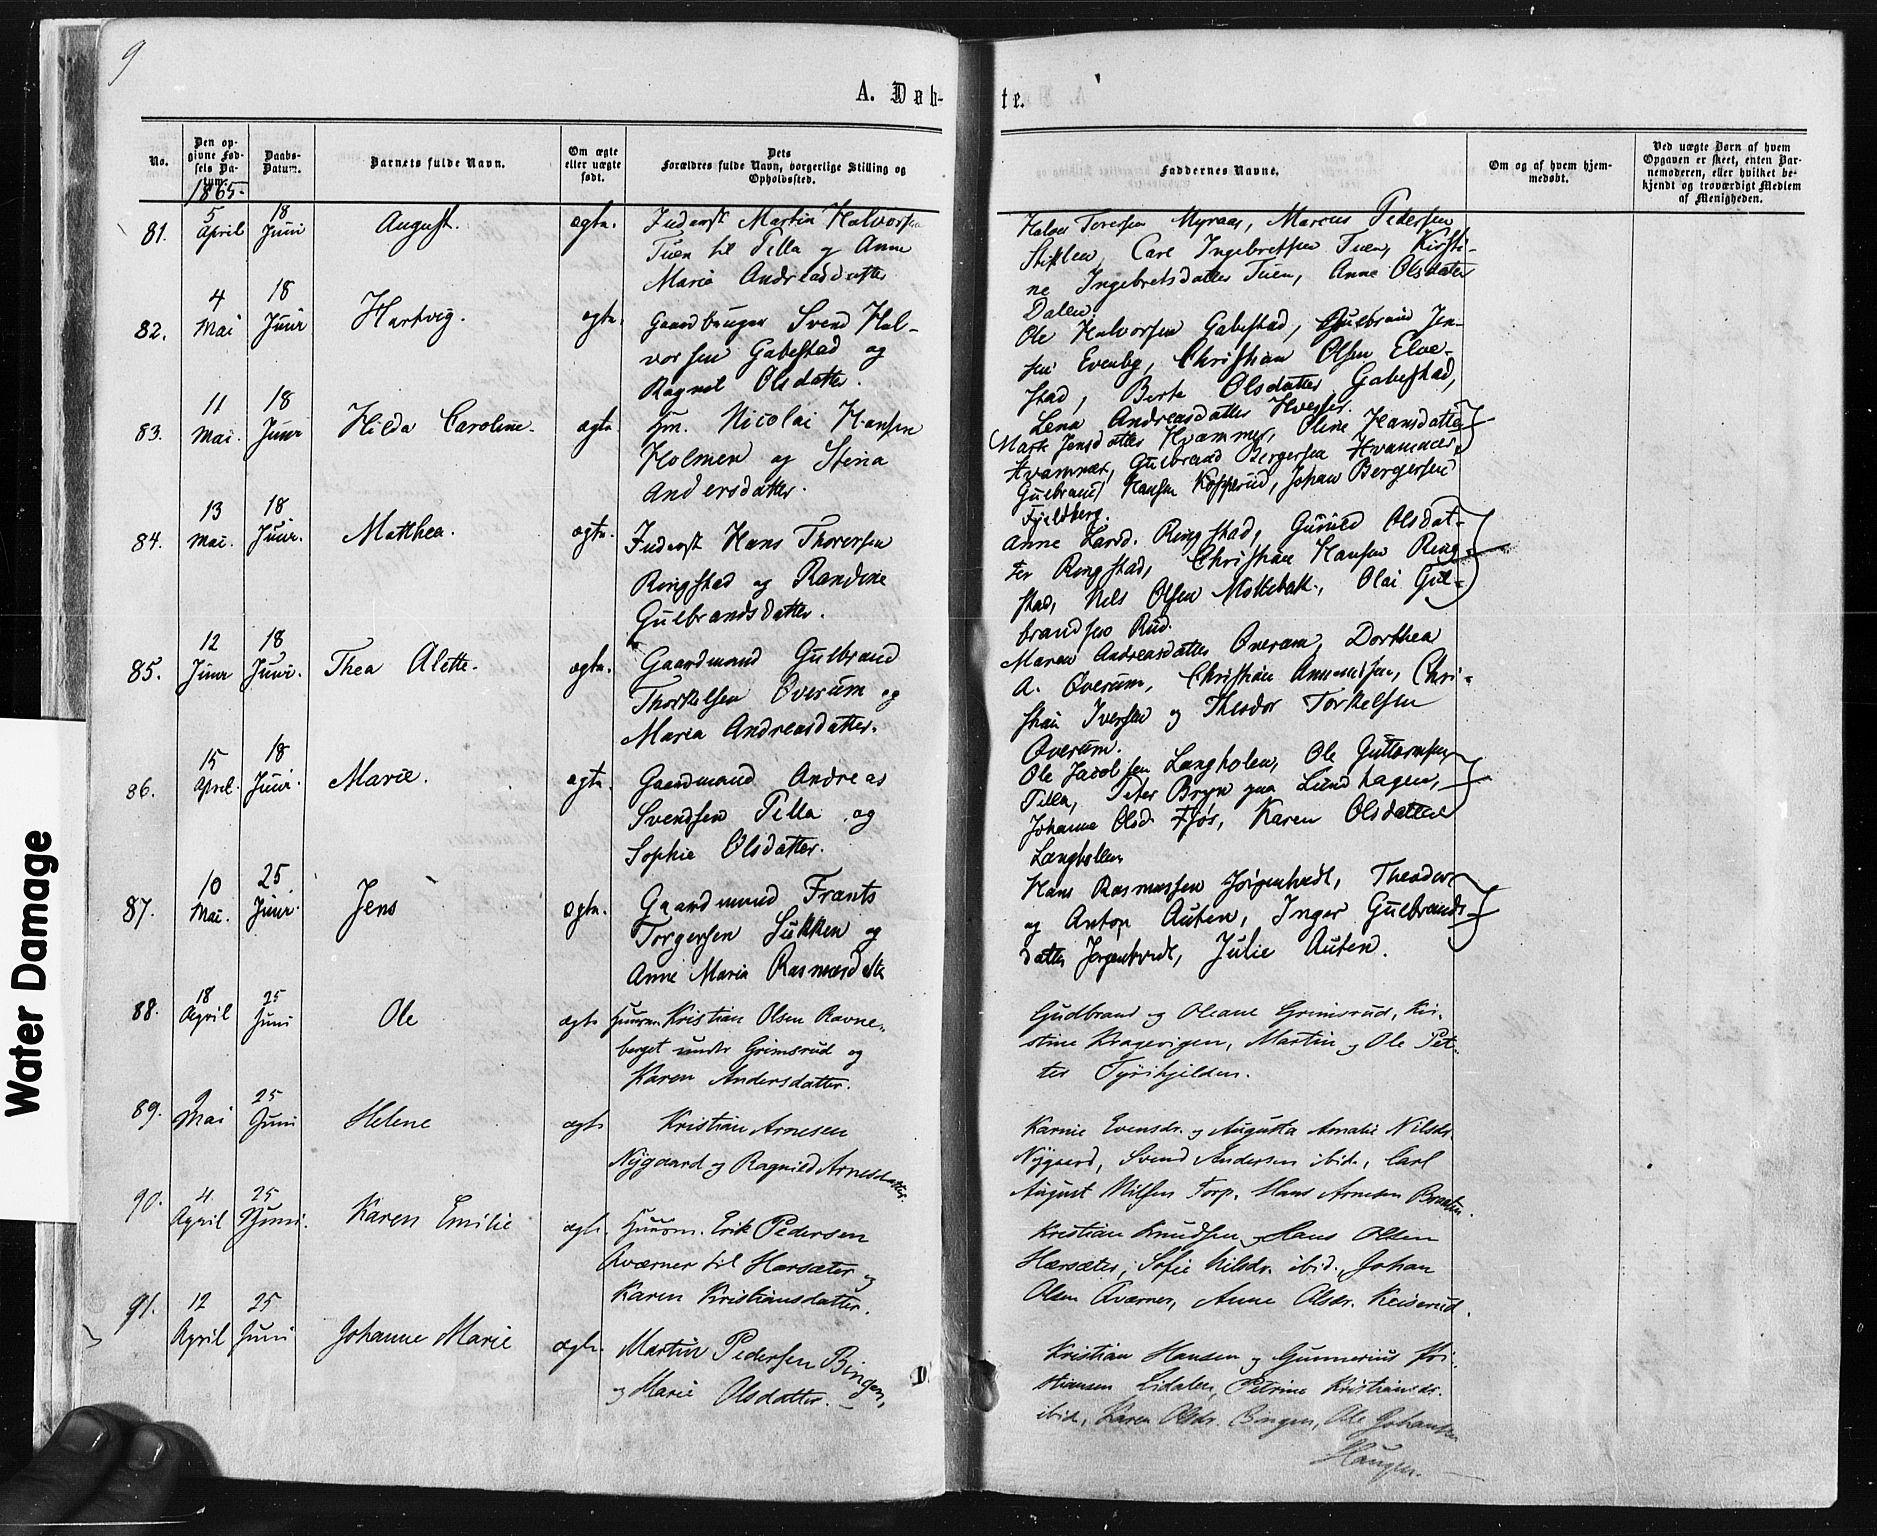 9
A. Døb-
te.
No.
Den op-
givne Fød-
sels Da-
tum.
1865.
Daabs-
Datum.
Barnets fulde Navn.
Om ægte
eller uægte
født.
Dets
Forældres fulde Navn, borgerlige Stilling og
Opholdssted.
Faddernes Navne.
Om og af hvem hjem-
medøbt.
Ved uægte Børn af hvem
Opgaven er skeet, enten Bar-
nemoderen, eller hvilket be-
kjendt og troværdigt Medlem
af Menigheden.
81.
5 April
18 Juni
August.
ægte.
Inderst Martin Halvorsen
Tuen til Tilla og Anne
Maria Andreasdatter
Halvor Toresen Myraas, Marcus Pedersen
Carl Ingebretsen Tuen, Kirsti-
ne Ingebretsdatter Tuen, Anne Olsdatter
Dalen.
82.
4 Mai
18 Juni
Hartvig.
ægte.
Gaardbruger Svend Hal-
vorsen Gabestad og
Ragnel Olsdatter.
Ole Halvorsen Gabestad, Gulbrand Jen-
sen Evenby, Christian Olsen Elve-
stad, Berte Olsdatter Gabestad,
Lena Andreasdatter
83.
11 Mai.
18 Juni
Hilda Caroline.
ægte
Hm. Nicolai Hansen
Holmen og Stina
Andersdatter.
Jensdatter Hvammer, Oline Hansdatter
Hvammer, Gulbrand Bergersen Hvammer,
Gulbrand Hansen Kopperud, Johan Bergersen
Fjeldberg.
84.
13 Mai.
18 Juni.
Matthea.
ægte
Inderst Hans Thoresen
Ringstad og Randine
Gulbrandsdatter.
Anne Ringstad, Gunild Olsdat-
ter Ringstad, Christian Hansen Ring-
stad, Nels Olsen Mollebak, Olai Gul-
brandsen Rud.
85.
12 Juni
18 Juni.
Thea Alette.
ægte
Gaardmand Gulbrand
Thorkelsen Overum og
Maria Andreasdatter.
Maren Andreasdatter Overum, Dorthea
A. Overum, Christian Chri-
stian Iversen og Theodor Torkelsen
Overum.
86.
15 April.
18 Juni.
Marie.
ægte
Gaardmand Andreas
Svendsen Tilla og
Sophie Olsdatter.
Ole Jacobsen Langholen, Ole Guttormsen
Tilla, Peter Bryn paa Lundhagen,
Johanne Olsd. Fjøs, Karen Olsdatter
Langholen
87.
10 Mai.
25 Juni.
Jens
ægte.
Gaardmand Frants
Torgersen Sukken og
Anne Maria Rasmusdatter
Hans Rasmussen Jørgentvedt, Theodor
og Anton Auten, Inger Gulbrands-
datter Jørgentvedt, Julie Auten.
88.
18 April
25 Juni
Ole
ægte
Huusm. Kristian Olsen Ravne-
berget under Grimsrud og
Karen Andersdatter.
Gudbrand og Oleane Grimsrud, Kir-
stine Kragevigen, Martin og Ole Pet-
ter Tyrihjelden.
89.
9 Mai
25 Juni
Helene
ægte
Kristian Arnesen
Nygaard og Ragnild Arnesdatter.
Karnie Evensdr. og Augusta Amalie Nilsdr.
Nygaard, Svend Andersen ibid., Carl
August Nilsen Torp, Hans Arnesen
90.
4. April
25 Juni.
Karen Emilie
ægte.
Huusm. Erik Pedersen
Aværner til Harsæter og
Karen Kristiansdatter.
Kristian Knudsen og Hans Olsen
Harsæter, Sofie Nilsdr. ibid., Johan
Olsen Aværner, Anne Olsdr. Keiserud.
91.
12 April
25 Juni
Johanne Marie
ægte.
Martin Pedersen Bingen,
og Marie Olsdatter.
Kristian Hansen og Gunnerius Kri-
stiansen Lidalen, Petrine Kristiansdr.
ibid., Karen Olsdr. Bingen, Ole Johansen
Haugen.
Water Damage